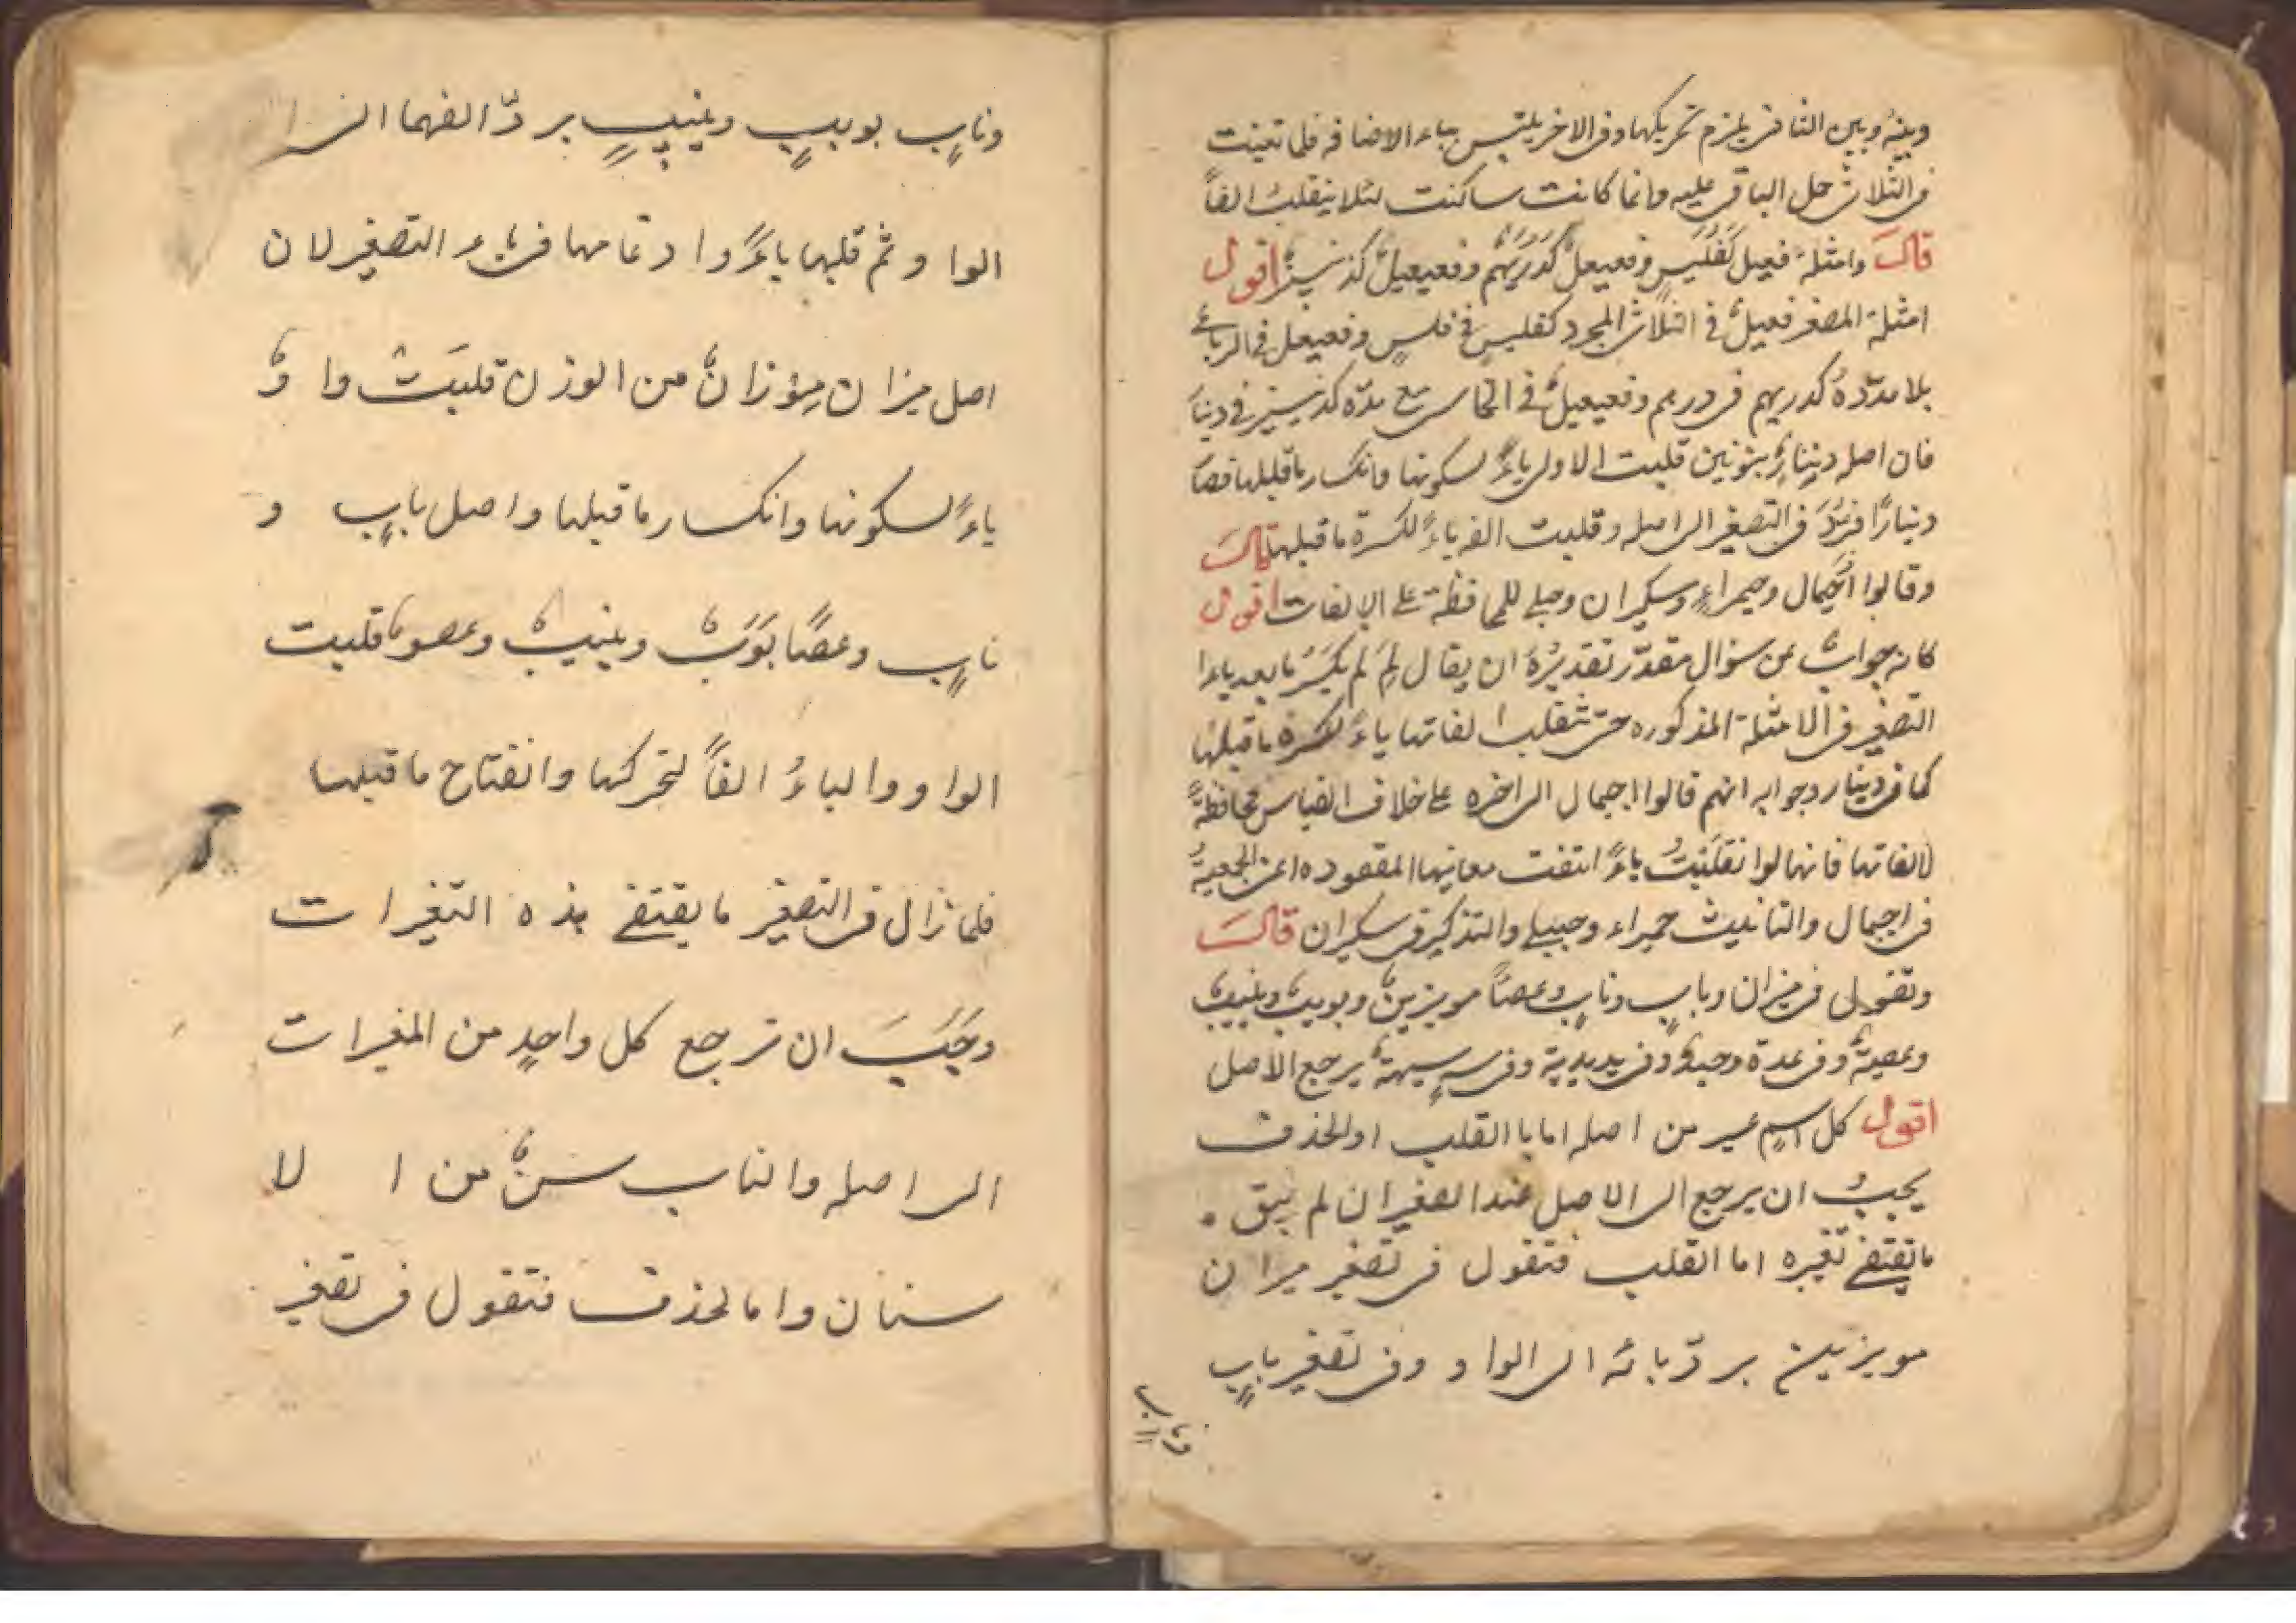 وبينه وبين الثانى يلزم تحريكها وفى الاخر يلتبس بياء الاضافه فلما تعينت
فى الثلاثى حمل الباقى عليه وانما كانت ساكنت لئلا ينقلب الفاً
قال وامثلة فعيل كفُلَيس وفعيعلٌ كدُرَيهِمٌ وفعيعيلٌ كدنينيرٌ اقول
امثلة المصغر فعيلٌ فى الثلاثى المجرد كفليس فى فلسٍ وفعيعل فى الرباعى
بلا مدّدة كدريهم فى درهم وفعيعيلٌ فى الخماسى مع مدّه كدنينير فى دينار
فان اصله دِنِنارٌ بنونين قلبت الاولى ياءً لسكونها وانكسار ماقبلها فصار
دينارًا فرُدّ فى التصغير الى اصله وقلبت الفه ياءً لكسرة ماقبلها قال
وقالوا اُجَيمال وحميراءِ وسكيران وحبيلى للمحافظة على الالفات اقول
كانه جوابٌ عن سؤال مقدّر تقديرُهُ ان يقال لِمَ لَم يكسَرُ مابعد ياء ا
التصغير فى الامثلة المذكوره حتى تنقلب الفاتها ياءً لكسرة ماقبلها
كما فى دينار وجوابه انهم قالوا اجيمال الى اخره على خلاف القياس محافظةً
لالفاتها فانها لوا نقلَبَتْ ياءً انتفت معانيها المقصوده اعنى الجمعيةُ
فى اجيمال والتانيث حميراء وحبيلى والتذكير فى سكيران قال
وتقول فى ميزان وبابٍ ونابٍ وعصًا مويزينٌ وبويبٌ ونييبٌ
وعصيةٌ وفى عدة وعيدةٌ وفى يد يديةٌ وفى سهٍ سيهةٌ يرجع الاصل
اقول كل اسمٍ غير من اصله اما با القلب او الحذف
يجبُ ان يرجع الى الاصل عند الصغير ان لم يبق .
مايقتضى تغيره اما القلب فتقول فى تصغير ميزان
مويزين بردّ يائه الى الواو وفى تصغير بابٍ
ونابٍ
ونابٍ بويبٍ ونييبٍ بردّ الفهما الى ا
الواو ثم قلبها ياءً وا دغامها فى ياء التصغير لان
اصل ميزان مِوْزانٌ من الوزن قلبَتْ واوٌ
ياءً لسكونها وانكسار ماقبلها واصل بابٍ و
نابٍ وعصًا بَوَبٌ ونيبٌ وعصوٌ قلبت
الواو والياءُ الفاً لتحركها وانفتاح ماقبلها
فلما زال فى التصغير مايقتضى هذه التغيرات
وجَبَ ان ترجع كل واحدٍ من المغيرات
الى اصله والناب سنٌ من ا لا
سنان واما لحذف فتقول فى تصغير